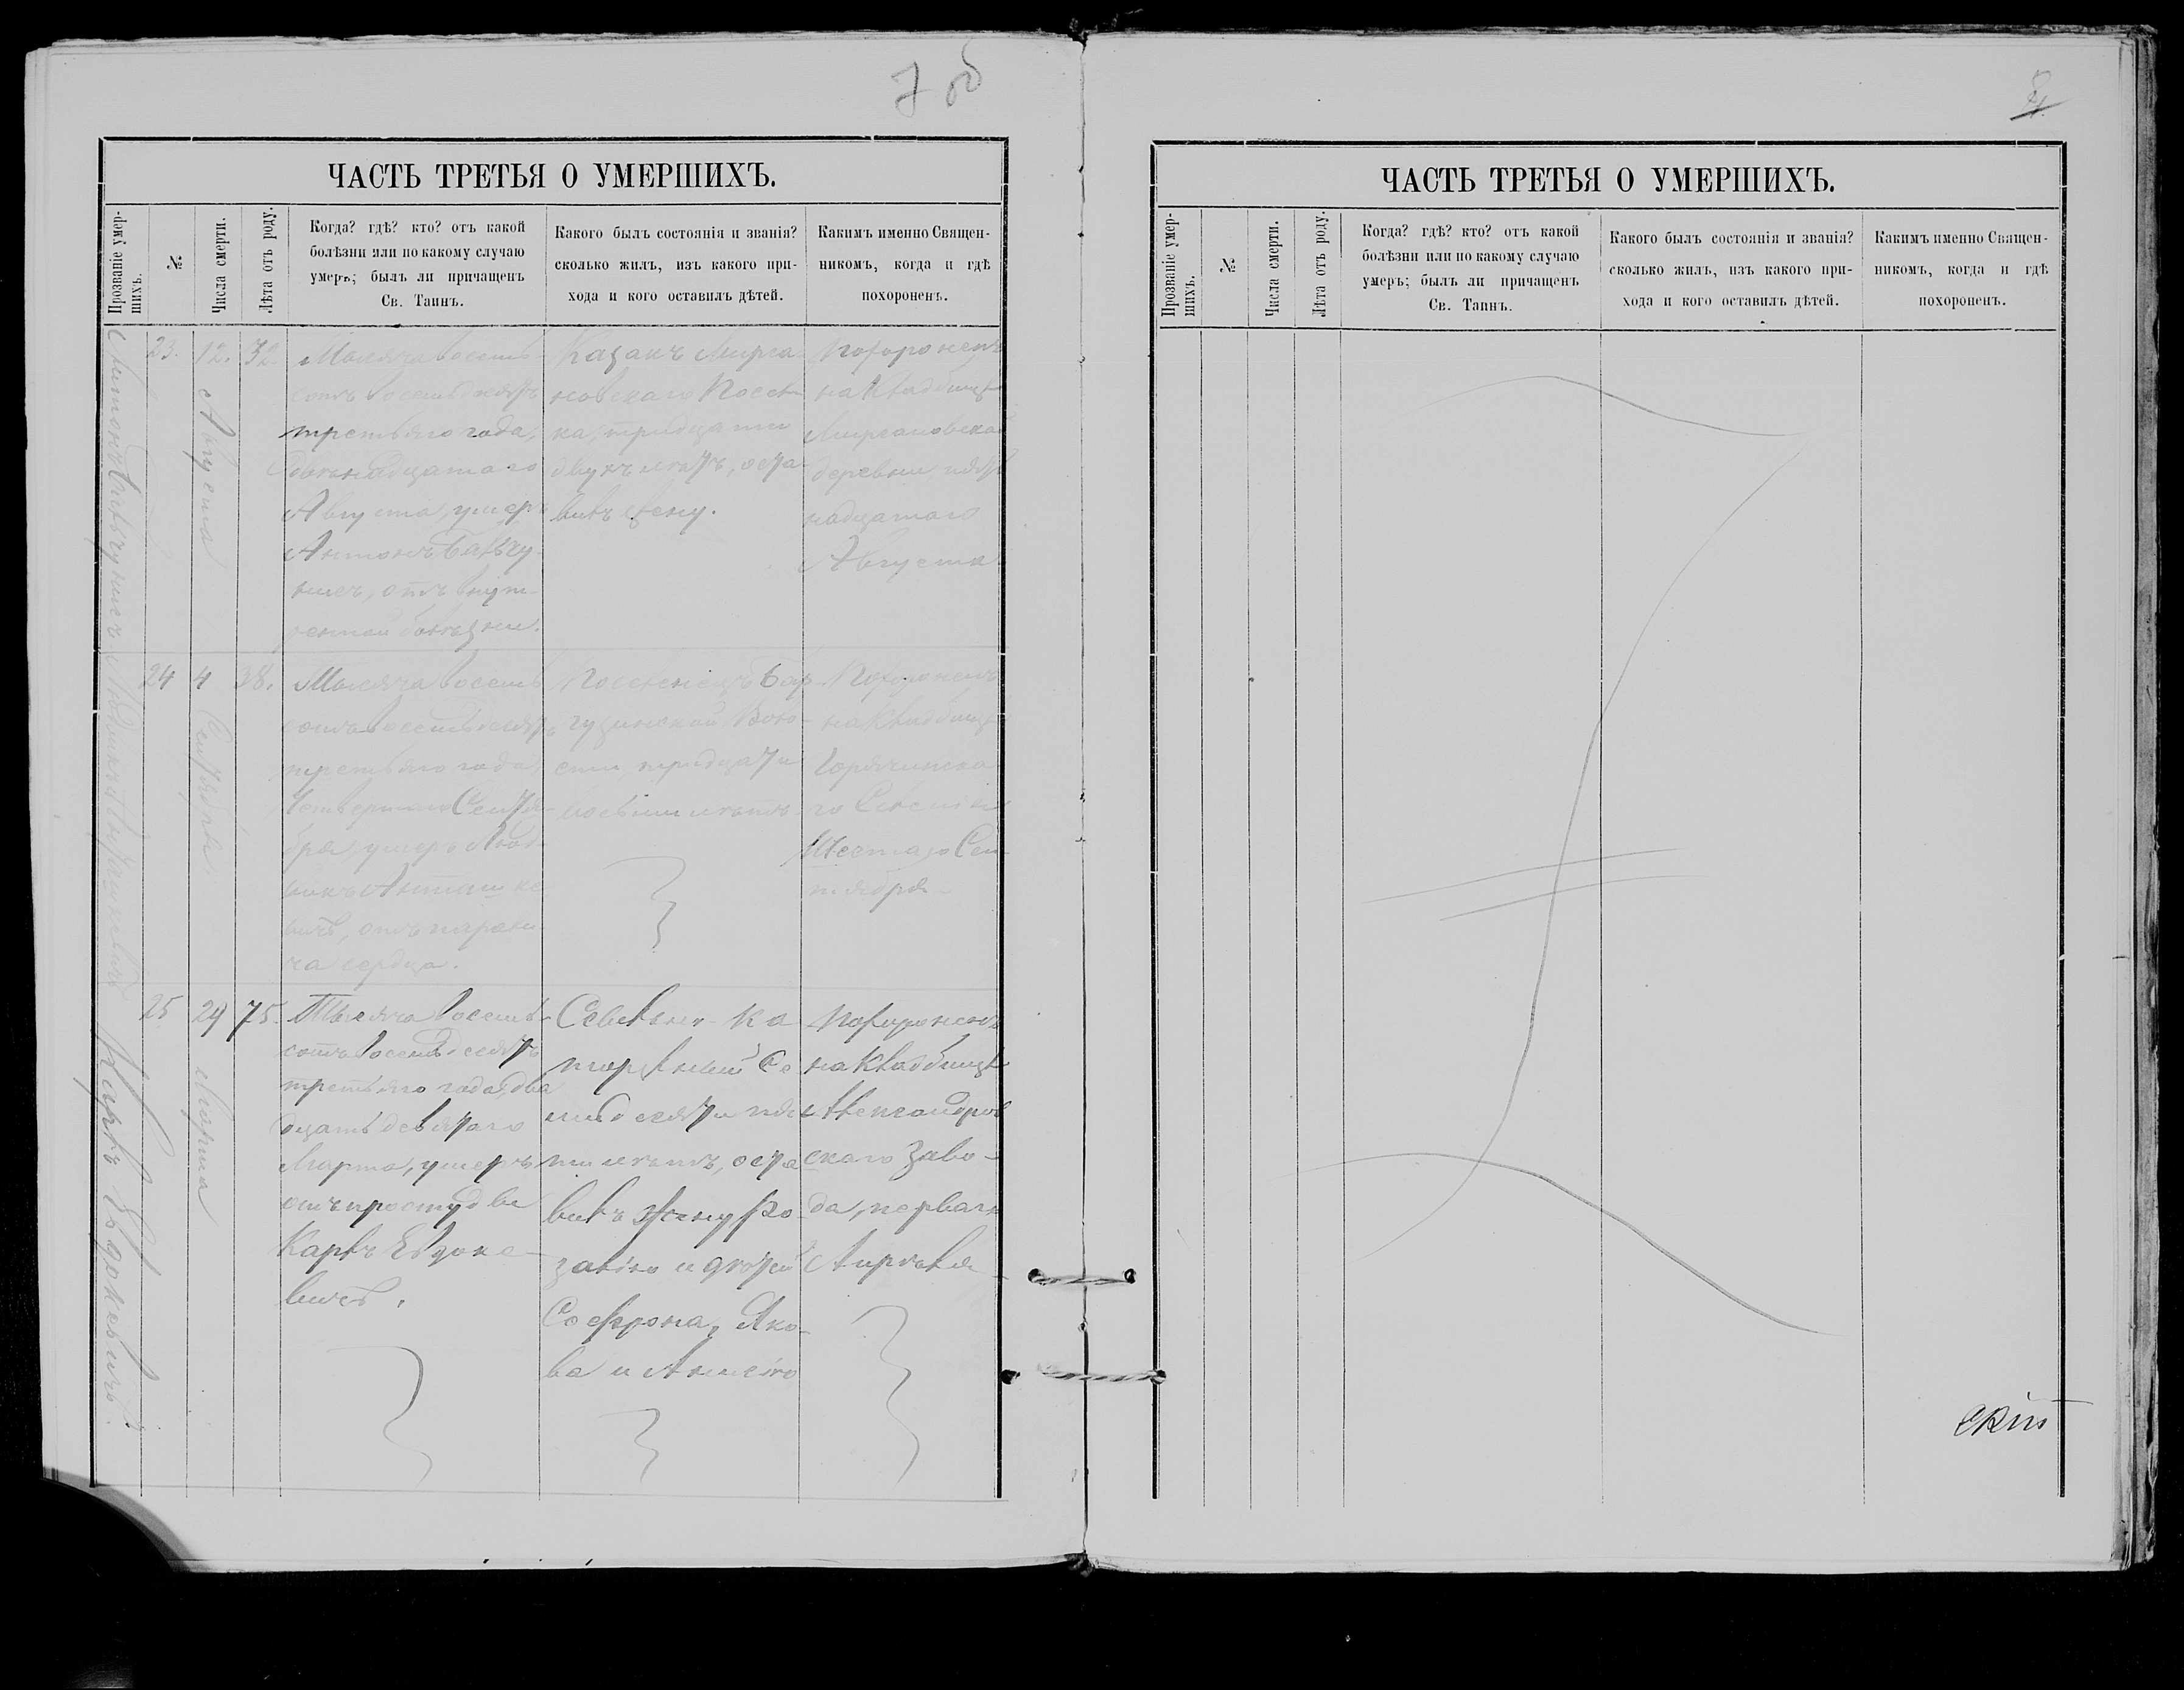 7 об
ЧАСТЬ ТРЕТЬЯ О УМЕРШИХЪ.
Прозваніе умер-
шихъ.
№
Числа смерти.
Лѣта отъ роду.
Когда? гдѣ? кто? отъ какой
болѣзни или по какому случаю
умеръ; былъ ли причащенъ
Св. Таинъ.
Какого былъ состоянія и званія?
сколько жилъ, изъ какого при-
хода и кого оставилъ дѣтей.
Какимъ именно Священ-
никомъ, когда и гдѣ
похороненъ.
23.
12.
Августа
32.
Тысяча восемь-
сотъ восемьдесятъ
третьяго года,
двѣнадцатаго
Августа, умеръ
Антонъ
отъ внут-
ренной болѣзни.
Казакъ
новскаго Посел-
ка, тридцати
двухъ лѣтъ, оста-
вивъ жену.
Похороненъ
на Кладбищѣ
деревни, пят-
надцатаго
Августа
24
4
Сентября
38.
Тысяча восемь
сотъ восемьдесятъ
третьяго года,
Четвертаго Сентя-
бря, умеръ
отъ парали-
ча сердца.
Поселенецъ Бар-
гузинской Воло-
сти, тридцати
восьми лѣтъ
Похороненъ
на Кладбищѣ
Горячинска-
го Селенія
Шестаго Сен-
тября
25
29
Марта
75.
Тысяча восемь-
сотъ восемьдесятъ
третьяго года, два
дцать девятаго
Марта, умеръ
отъ простуды
Карлъ Евдоке-
вичъ.
Карлъ Евдокевичъ.
Ссыльно-ка
торжный Се
мидесяти пя-
ти лѣтъ, оста
вивъ жену Ро-
залію и дѣтей
Софрона, Яко-
ва и
Похороненъ
на Кладбищѣ
Александров
скаго Заво-
да, перваго
Апрѣля
ЧАСТЬ ТРЕТЬЯ О УМЕРШИХЪ.
Прозваніе умер-
шихъ.
№
Числа смерти.
Лѣта отъ роду.
Когда? гдѣ? кто? отъ какой
болѣзни или по какому случаю
умеръ; былъ ли причащенъ
Св. Таинъ.
Какого былъ состоянія и званія?
сколько жилъ, изъ какого при-
хода и кого оставилъ дѣтей.
Какимъ именно Священ-
никомъ, когда и гдѣ
похороненъ.